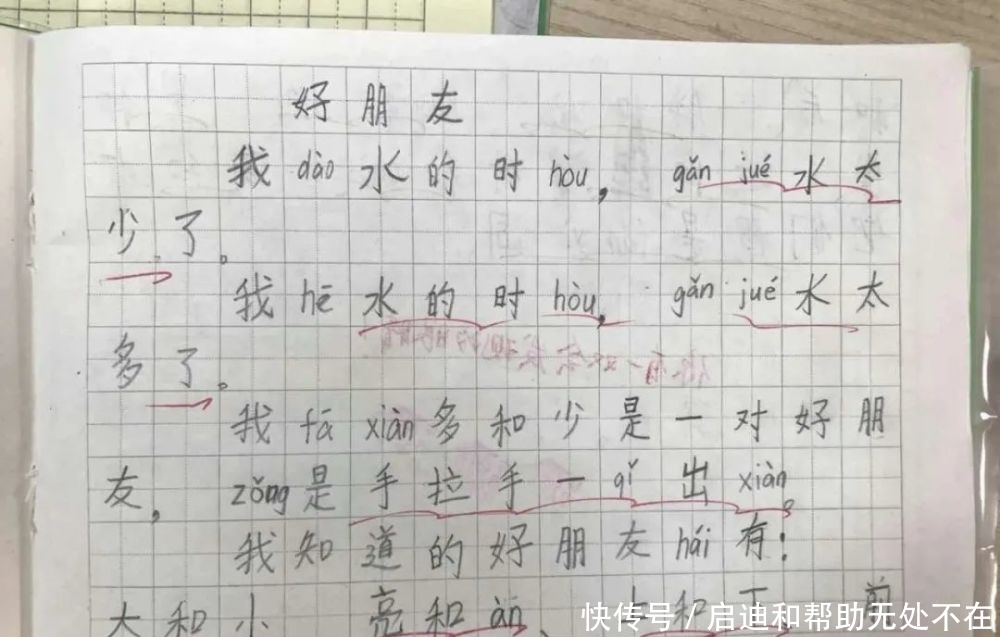 好朋友
我dào水的时hòu，gǎn jué水太
少了。
我hē水的时hòu，gǎn jué水太
多了。
我fā xiàn多和少是一对好朋
友，zǒng是手拉手一qǐ出xiàn。
我知道的好朋友hái有：
大和小 亮和àn、
快传号/启迪和帮助无处不在